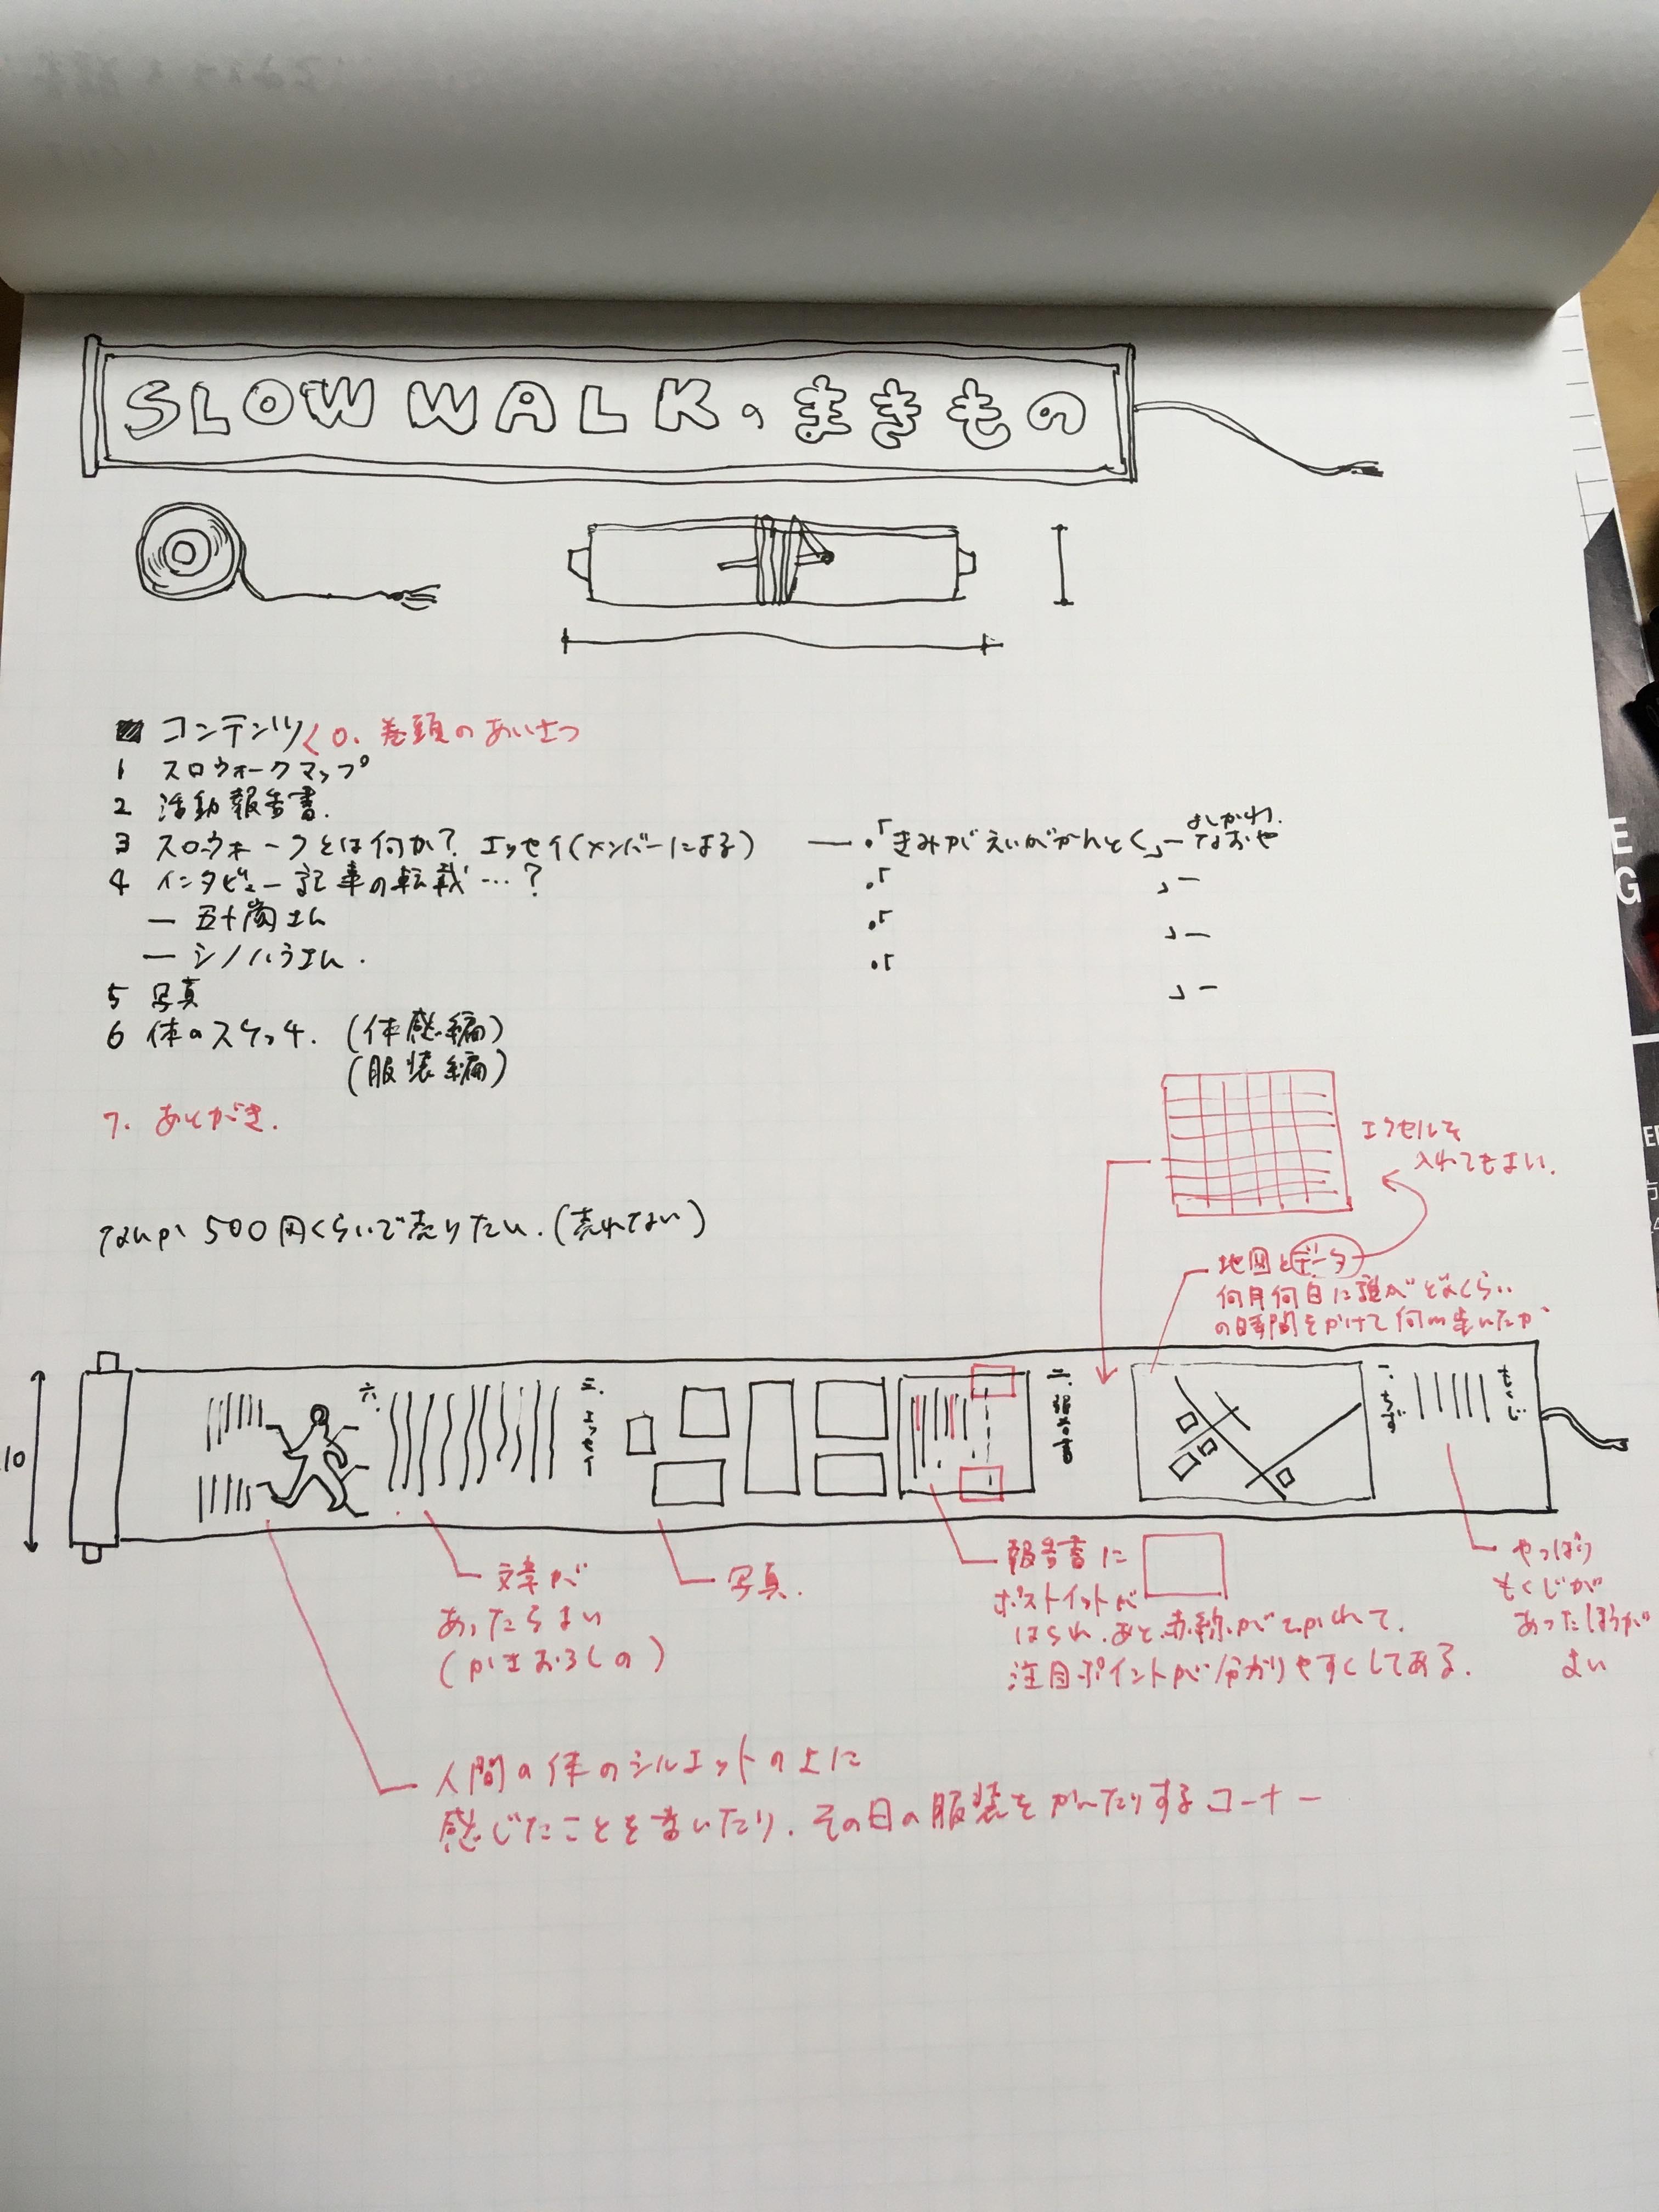 SLOW WALKのまきもの
コンテンツ 0. 巻頭のあいさつ
1 スロウォークマップ
2 活動報告書.
3 スロウォークとは何か? エッセイ(メンバーによる) — ・「きみがえいがかんとく」— よしかわ.なおや
4 インタビュー記事の転載…? ・「 」—
— 五十嵐さん ・「 」—
— シノハラさん. ・「 」—
5 写真
6 体のスケッチ. (体感編)
(服装編)
7. あとがき.
エクセルを
入れてもよい.
なんか 500円くらいで売りたい.(売れてない)
地図とデータ
何月何日に誰がどんくらい
の時間をかけて何m歩いたか
10
もくじ
一、ちず
二、報告書
三、エッセイ
六、
文章が
あったらよい
(かきおろしの)
写真.
報告書に
ポストイットが
はられ、あと、赤線がひかれて、
注目ポイントが分かりやすくしてある.
やっぱり
もくじが
あったほうが
よい
人間の体のシルエットの上に
感じたことを書いたり、その日の服装をかいたりするコーナー
E
G